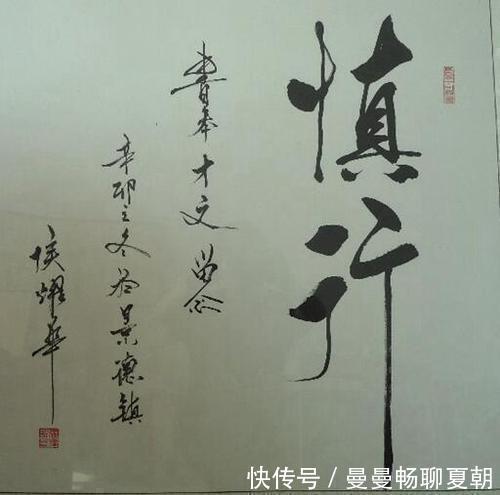 慎行
書奉才文留念
辛卯之冬于景德镇
侯耀华
快传号/曼曼畅聊夏朝